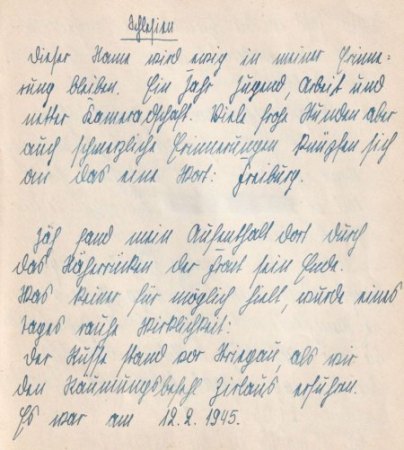 Schlesien
Dieser Name wird ewig in meiner Erinne=
rung bleiben. Ein Jahr Jugend, Arbeit und
netter Kameradschaft. Viele frohe Stunden aber
auch schmerzliche Erinnerungen knüpfen sich
an das eine Wort: Freiburg.
Jäh fand mein Aufenthalt dort durch
das Näherrücken der Front sein Ende.
Was keiner für möglich hielt, wurde eines
Tages rauhe Wirklichkeit:
Der Russe stand vor Striegau, als wir
den Räumungsbefehl Zirlaus erfuhren.
Es war am 12.2.1945.